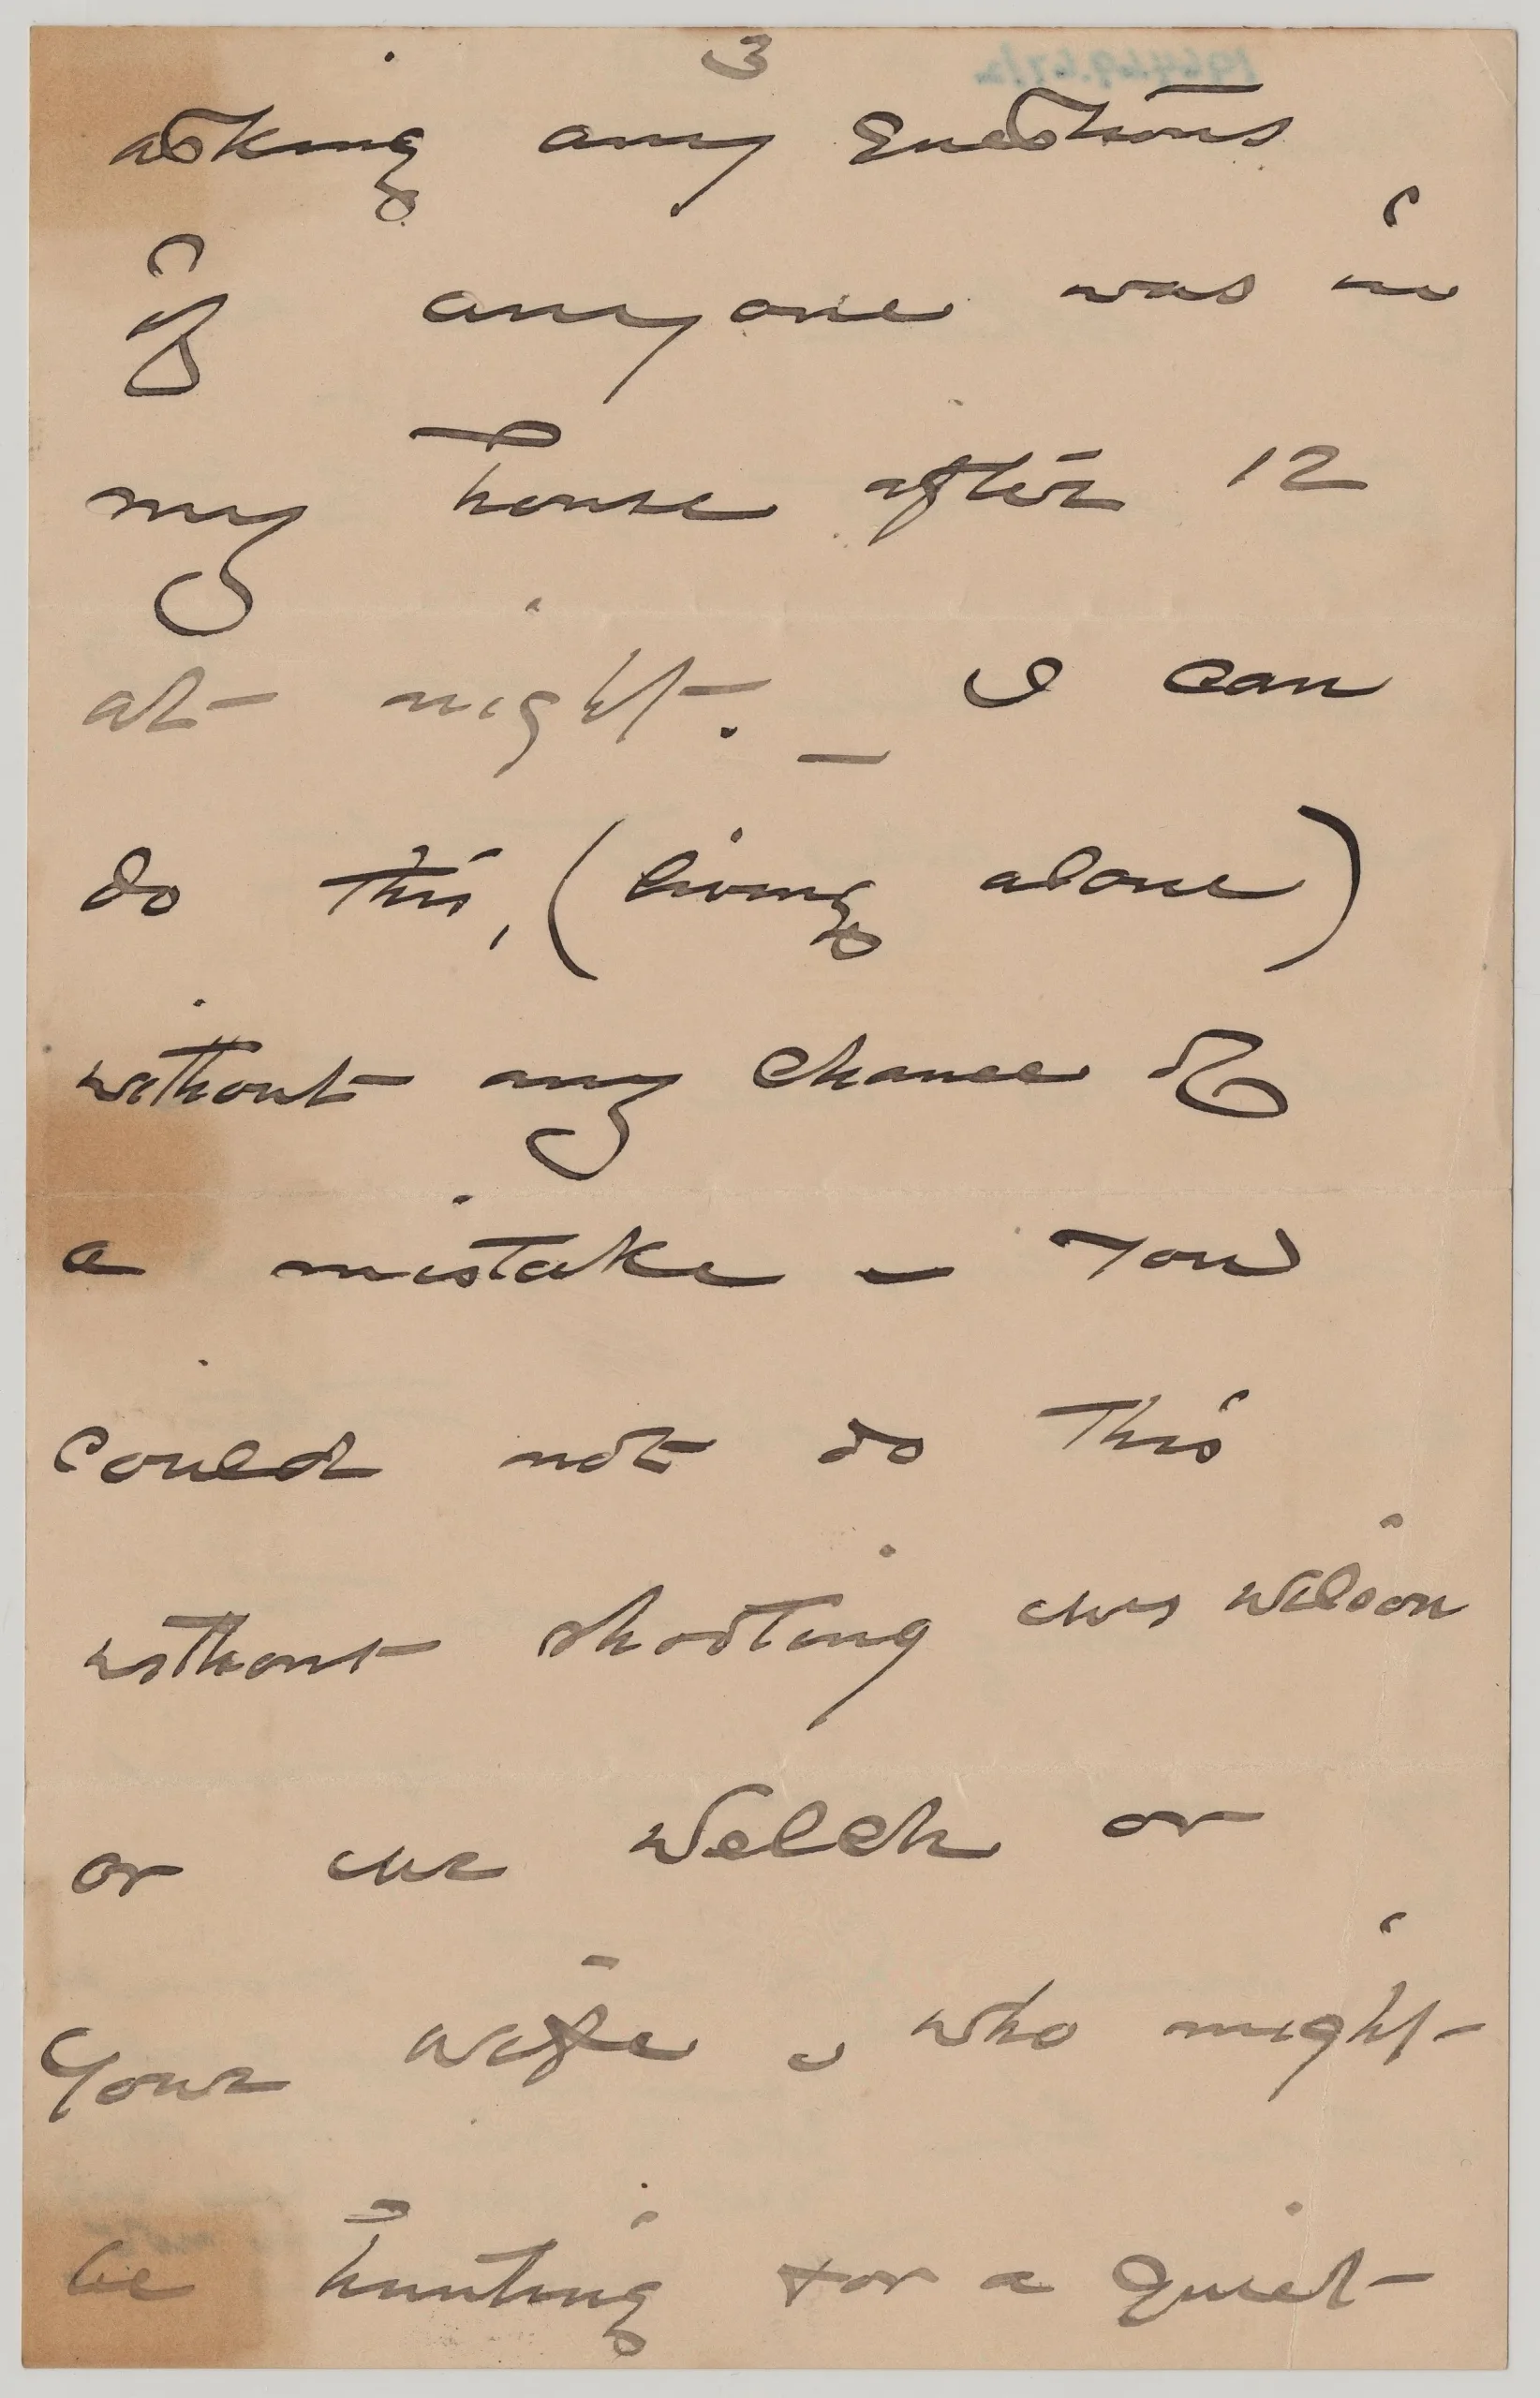 3
asking any questions
if anyone was in
my house after 12
at night. _ I can
do this, (living alone)
without any chance of
a mistake – You
could not do this
without shooting Mrs Wilson
or Mr Welch or
your wife, who might
be hunting for a quiet